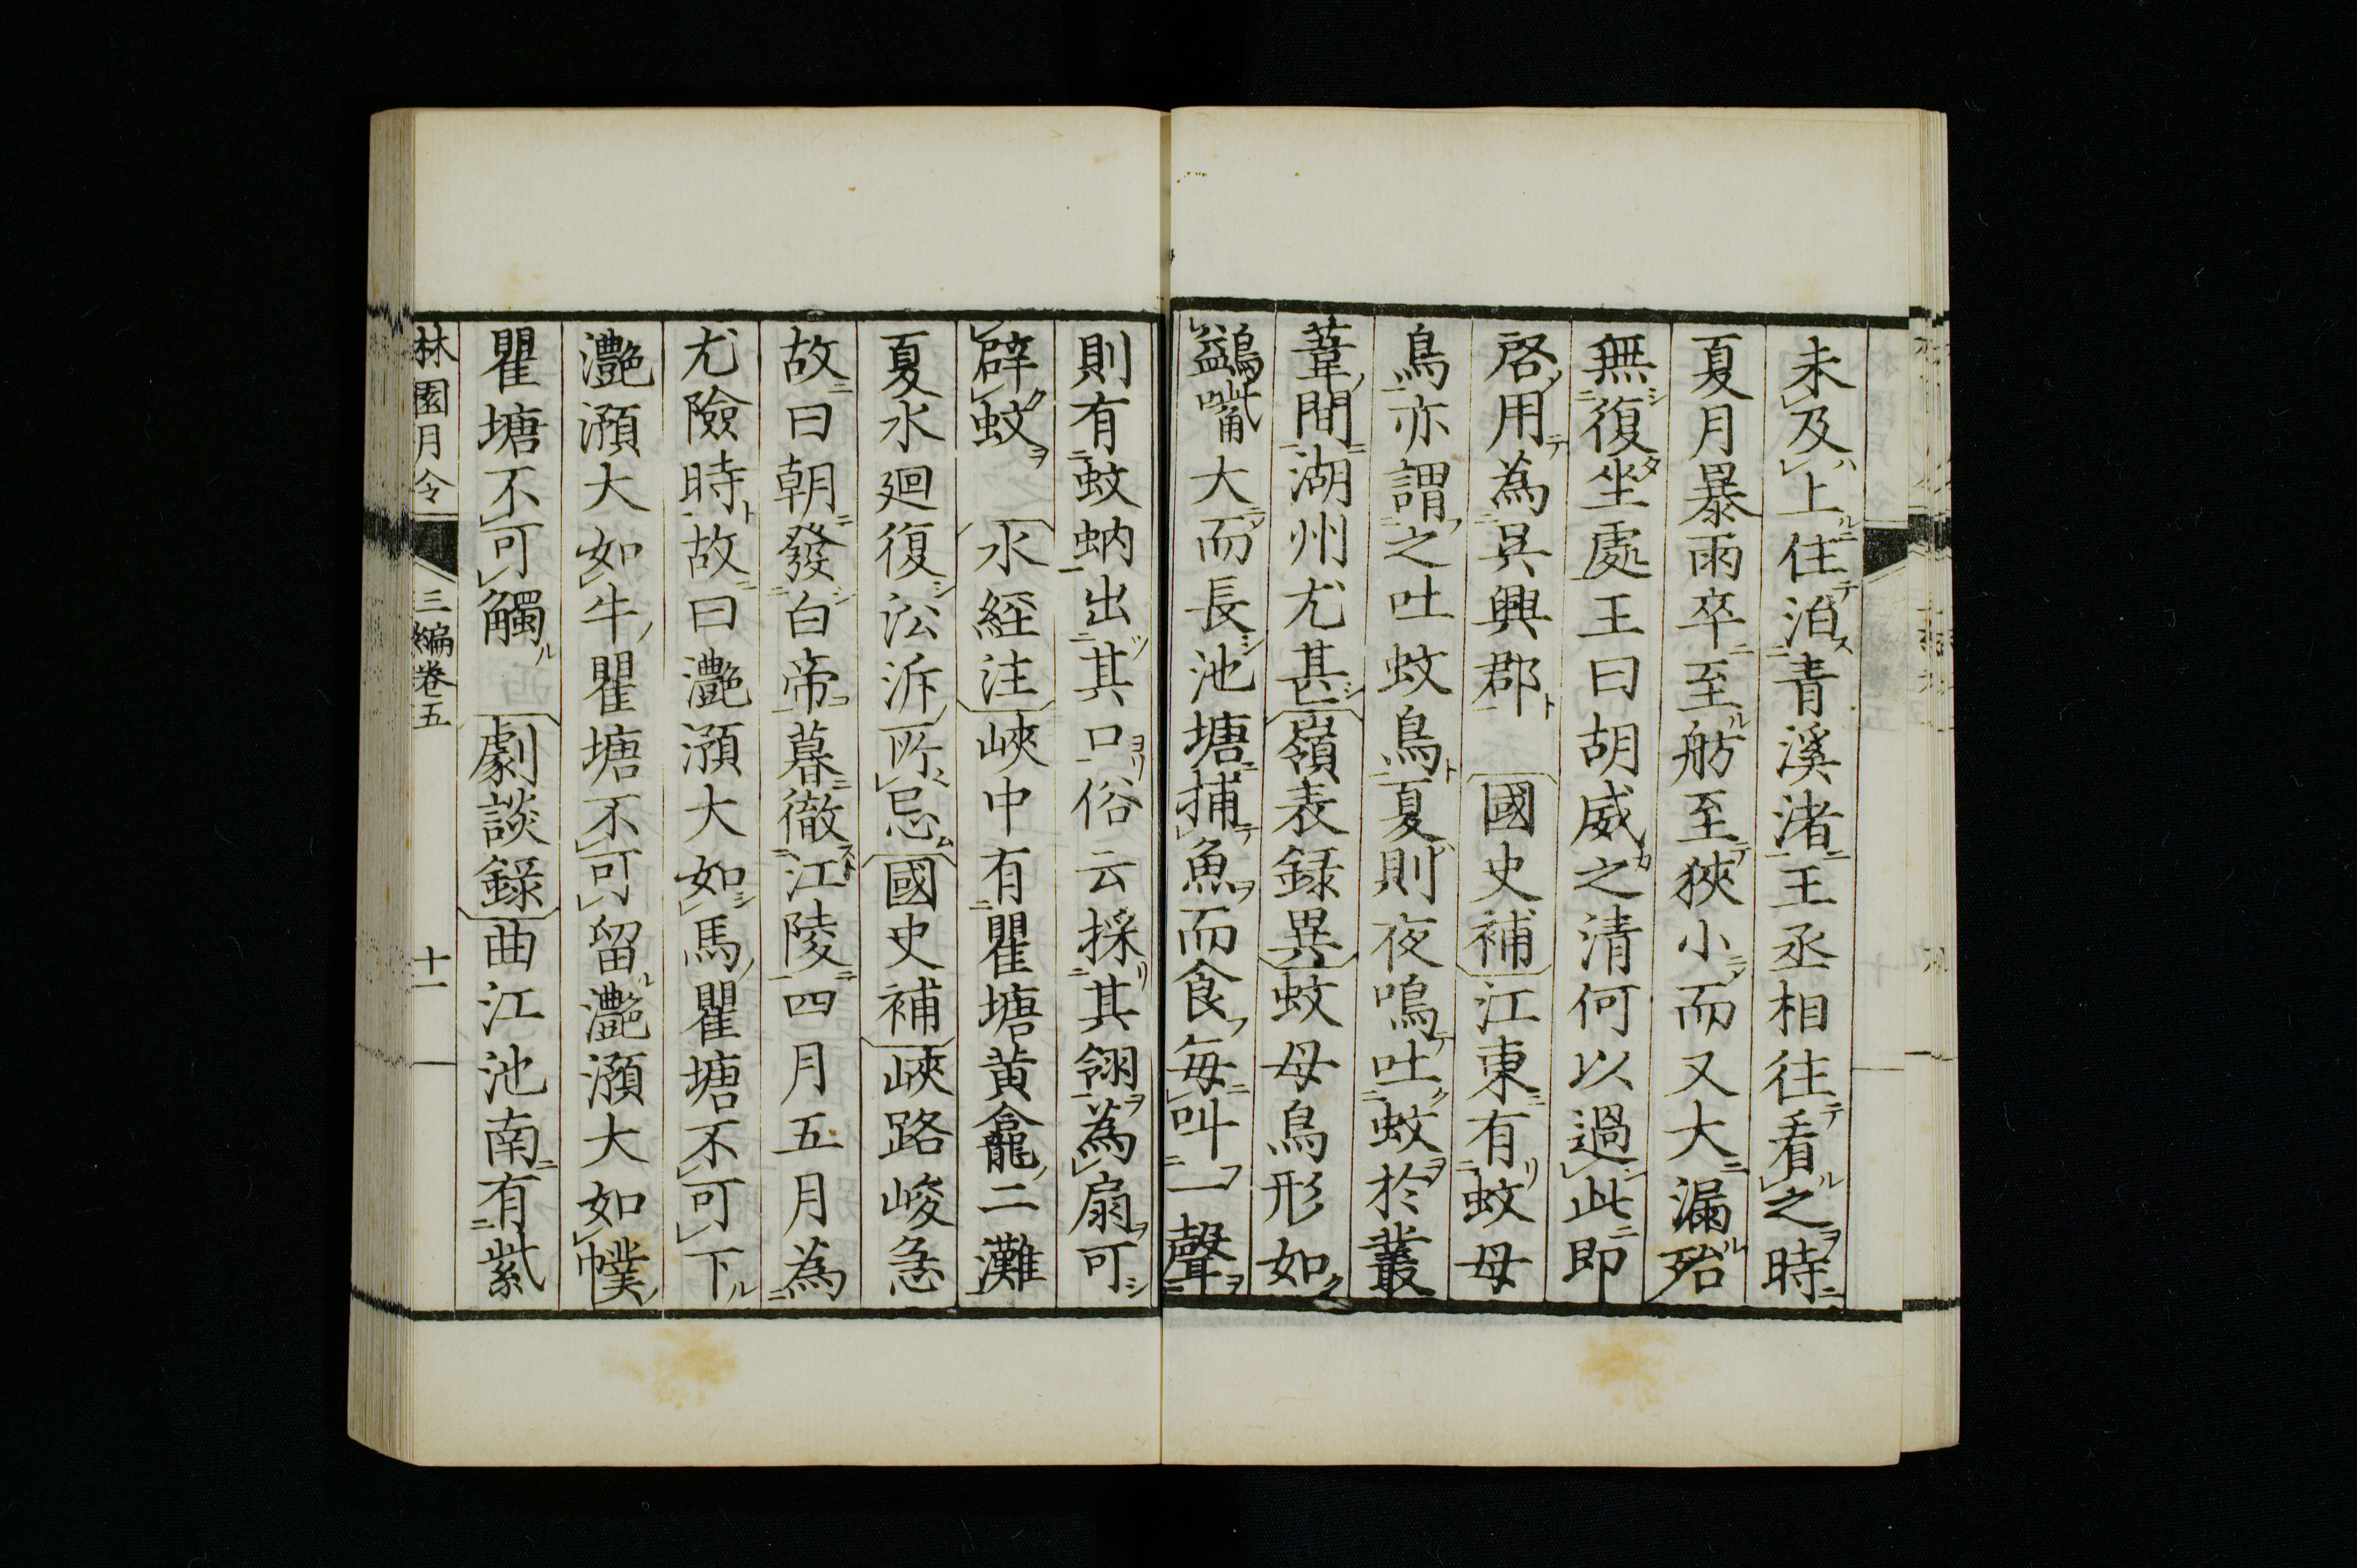 未及上住泊青溪渚王丞相往看之時
夏月暴雨卒至舫至狹小而又大漏殆
無復坐處王曰胡威之清何以過此即
啓用為吳興郡 國史補江東有蚊母
鳥亦謂之吐蚊鳥夏則夜鳴吐蚊於叢
葦間湖州尤甚嶺表錄異蚊母鳥形如
鷁嘴大而長池塘捕魚而食每叫一聲
則有蚊蚋出其口俗云採其翎為扇可
辟蚊 水經注峽中有瞿塘黃龕二灘
夏水廻復沿泝所忌國史補峽路峻急
故曰朝發白帝暮徹江陵四月五月為
尤險時故曰灔澦大如馬瞿塘不可下
灔澦大如牛瞿塘不可留灔澦大如幞
瞿塘不可觸 劇談錄曲江池南有紫
林園月令 三編卷五 十一